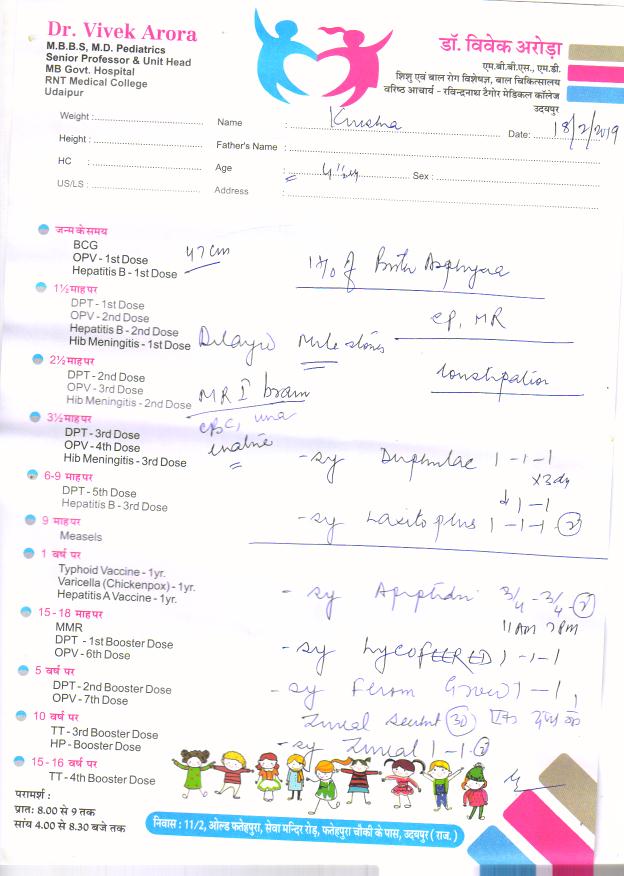 Dr. Vivek Arora
M.B.B.S, M.D. Pediatrics
Senior Professor & Unit Head
MB Govt. Hospital
RNT Medical College
Udaipur
डॉ. विवेक अरोड़ा
एम.बी.बी.एस., एम.डी.
शिशु एवं बाल रोग विशेषज्ञ, बाल चिकित्सालय
वरिष्ठ आचार्य - रविन्द्रनाथ टैगोर मेडिकल कॉलेज
उदयपुर
Weight : Name : Krishna Date: 18/2/2019
Height : Father's Name :
HC : Age : 4 1/2 yr Sex :
US/LS : Address :
जन्म के समय
BCG 47 cm
OPV - 1st Dose H/o of Birth Asphyxia
Hepatitis B - 1st Dose
1½ माह पर
DPT - 1st Dose
OPV - 2nd Dose CP, MR
Hepatitis B - 2nd Dose
Hib Meningitis - 1st Dose Delayed Mile stones
2½ माह पर
DPT - 2nd Dose Constipation
OPV - 3rd Dose MRI brain
Hib Meningitis - 2nd Dose
3½ माह पर CBC,
DPT - 3rd Dose
OPV - 4th Dose
Hib Meningitis - 3rd Dose - sy Duphalac 1 - 1 - 1
6-9 माह पर
DPT - 5th Dose 1 - 1
Hepatitis B - 3rd Dose
9 माह पर - sy 1 - 1 - 1
Measels
1 वर्ष पर
Typhoid Vaccine - 1yr.
Varicella (Chickenpox) - 1yr. - sy 3/4 - 3/4
Hepatitis A Vaccine - 1yr. 11 AM 7 PM
15 - 18 माह पर
MMR
DPT - 1st Booster Dose - sy 1 - 1 - 1
OPV - 6th Dose
5 वर्ष पर
DPT - 2nd Booster Dose - sy
OPV - 7th Dose
10 वर्ष पर
TT - 3rd Booster Dose
HP - Booster Dose - sy 1 - 1
15 - 16 वर्ष पर
TT - 4th Booster Dose
परामर्श :
प्रात: 8.00 से 9 तक
सांय 4.00 से 8.30 बजे तक
निवास : 11/2, ओल्ड फतेहपुरा, सेवा मन्दिर रोड़, फतेहपुरा चौकी के पास, उदयपुर ( राज. )